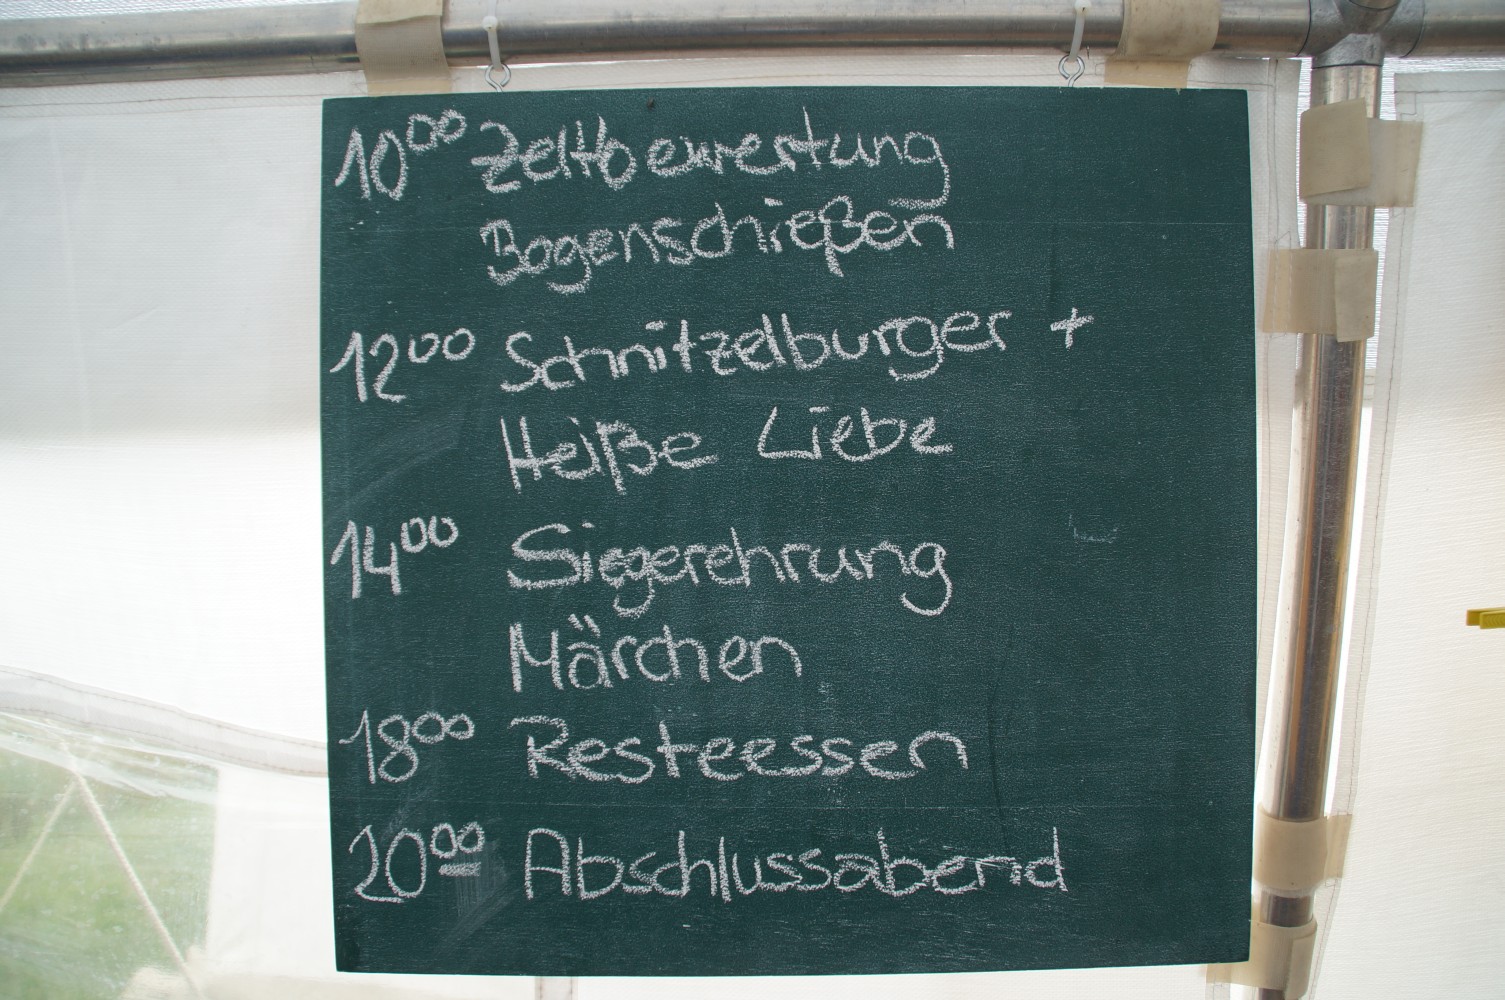 10⁰⁰ Zeltbewertung
Bogenschießen
12⁰⁰ Schnitzelburger +
Heiße Liebe
14⁰⁰ Siegerehrung
Märchen
18⁰⁰ Resteessen
20⁰⁰ Abschlussabend